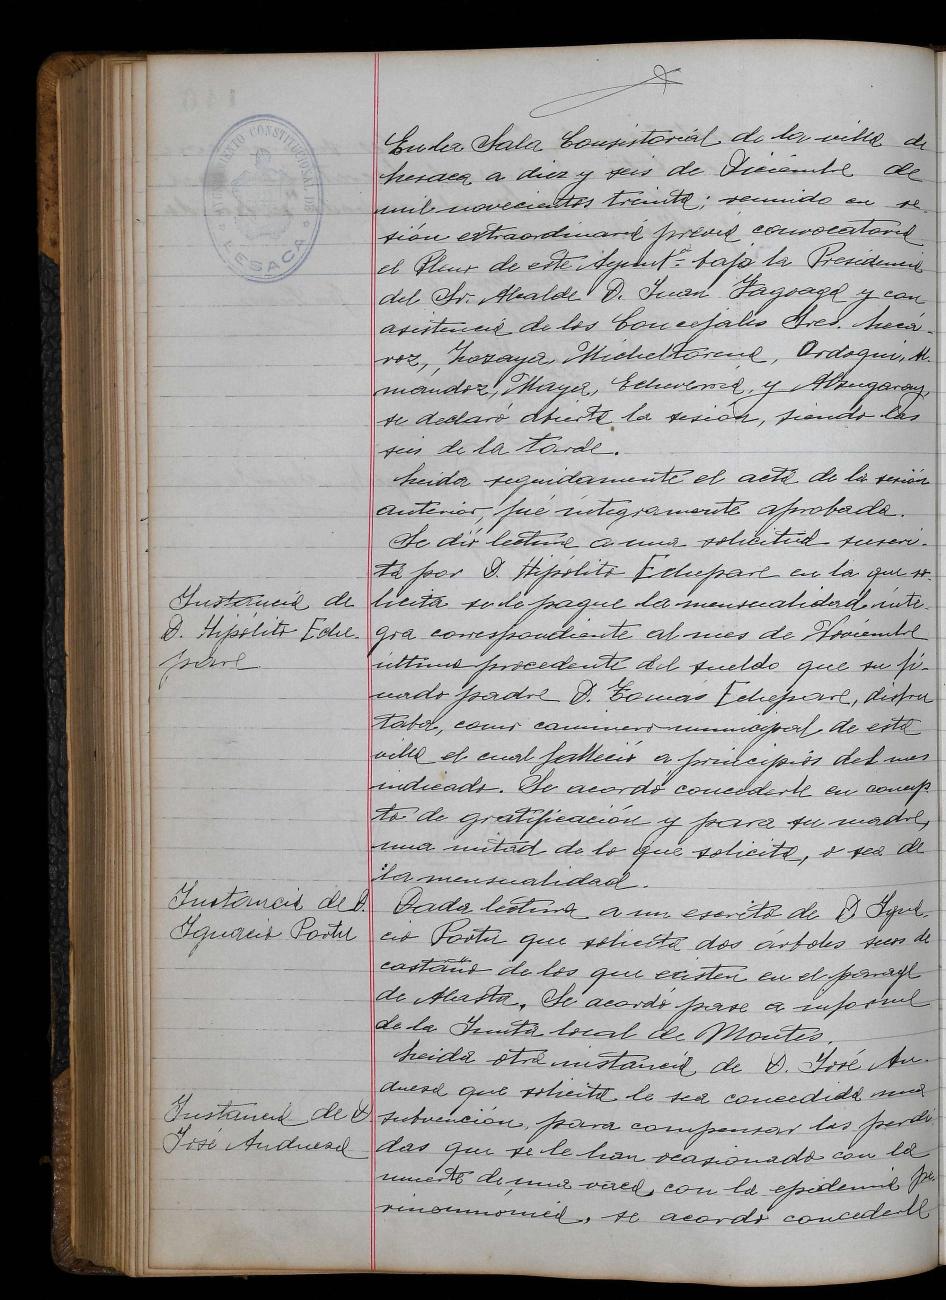 AYUNTAMIENTO CONSTITUCIONAL DE
LESACA
En la Sala Consistorial de la villa de
Lesaca a diez y seis de Diciembre de
mil novecientos treinta; reunido en se-
sión extraordinaria previa convocatoria
el Pleno de este Ayunt.º bajo la Presidencia
del Sr. Alcalde D. Juan Zagoaga y con
asistencia de los Concejales Sres. Lecá-
roz, Lozaya, Micheltorena, Ordoqui, Al-
mándoz, Maya, Echeverría, y Alzugaray,
se declaró abierta la sesión, siendo las
seis de la tarde.
Leida seguidamente el acta de la sesión
anterior, fué integramente aprobada.
Se dió lectura a una solicitud suscri-
ta por D. Hipólito Echepare en la que so-
Instancia de
D. Hipólito Eche-
pare
licita se le pague la mensualidad ínte-
gra correspondiente al mes de Noviembre
último procedente del sueldo que su fi-
nado padre D. Tomás Echepare, disfru
taba, como caminero municipal de esta
villa el cual falleció a principios del mes
indicado. Se acordó concederle en concep-
to de gratificación y para su madre,
una mitad de lo que solicita, o sea de
la mensualidad.
Instancia de D.
Ignacio Portu
Dada lectura a un escrito de D. Igna-
cio Portu que solicita dos arboles secos de
castaño de los que existen en el paraje
de Alasta. Se acordó pase a informe
de la Junta local de Montes.
Leida otra instancia de D. José An-
duesa que solicita le sea concedida una
Instancia de D.
José Anduesa
subvención, para compensar las perdi
das que se le han ocasionado con la
muerte de una vaca, con la epidemia pe-
rineumonia, se acordó concederle